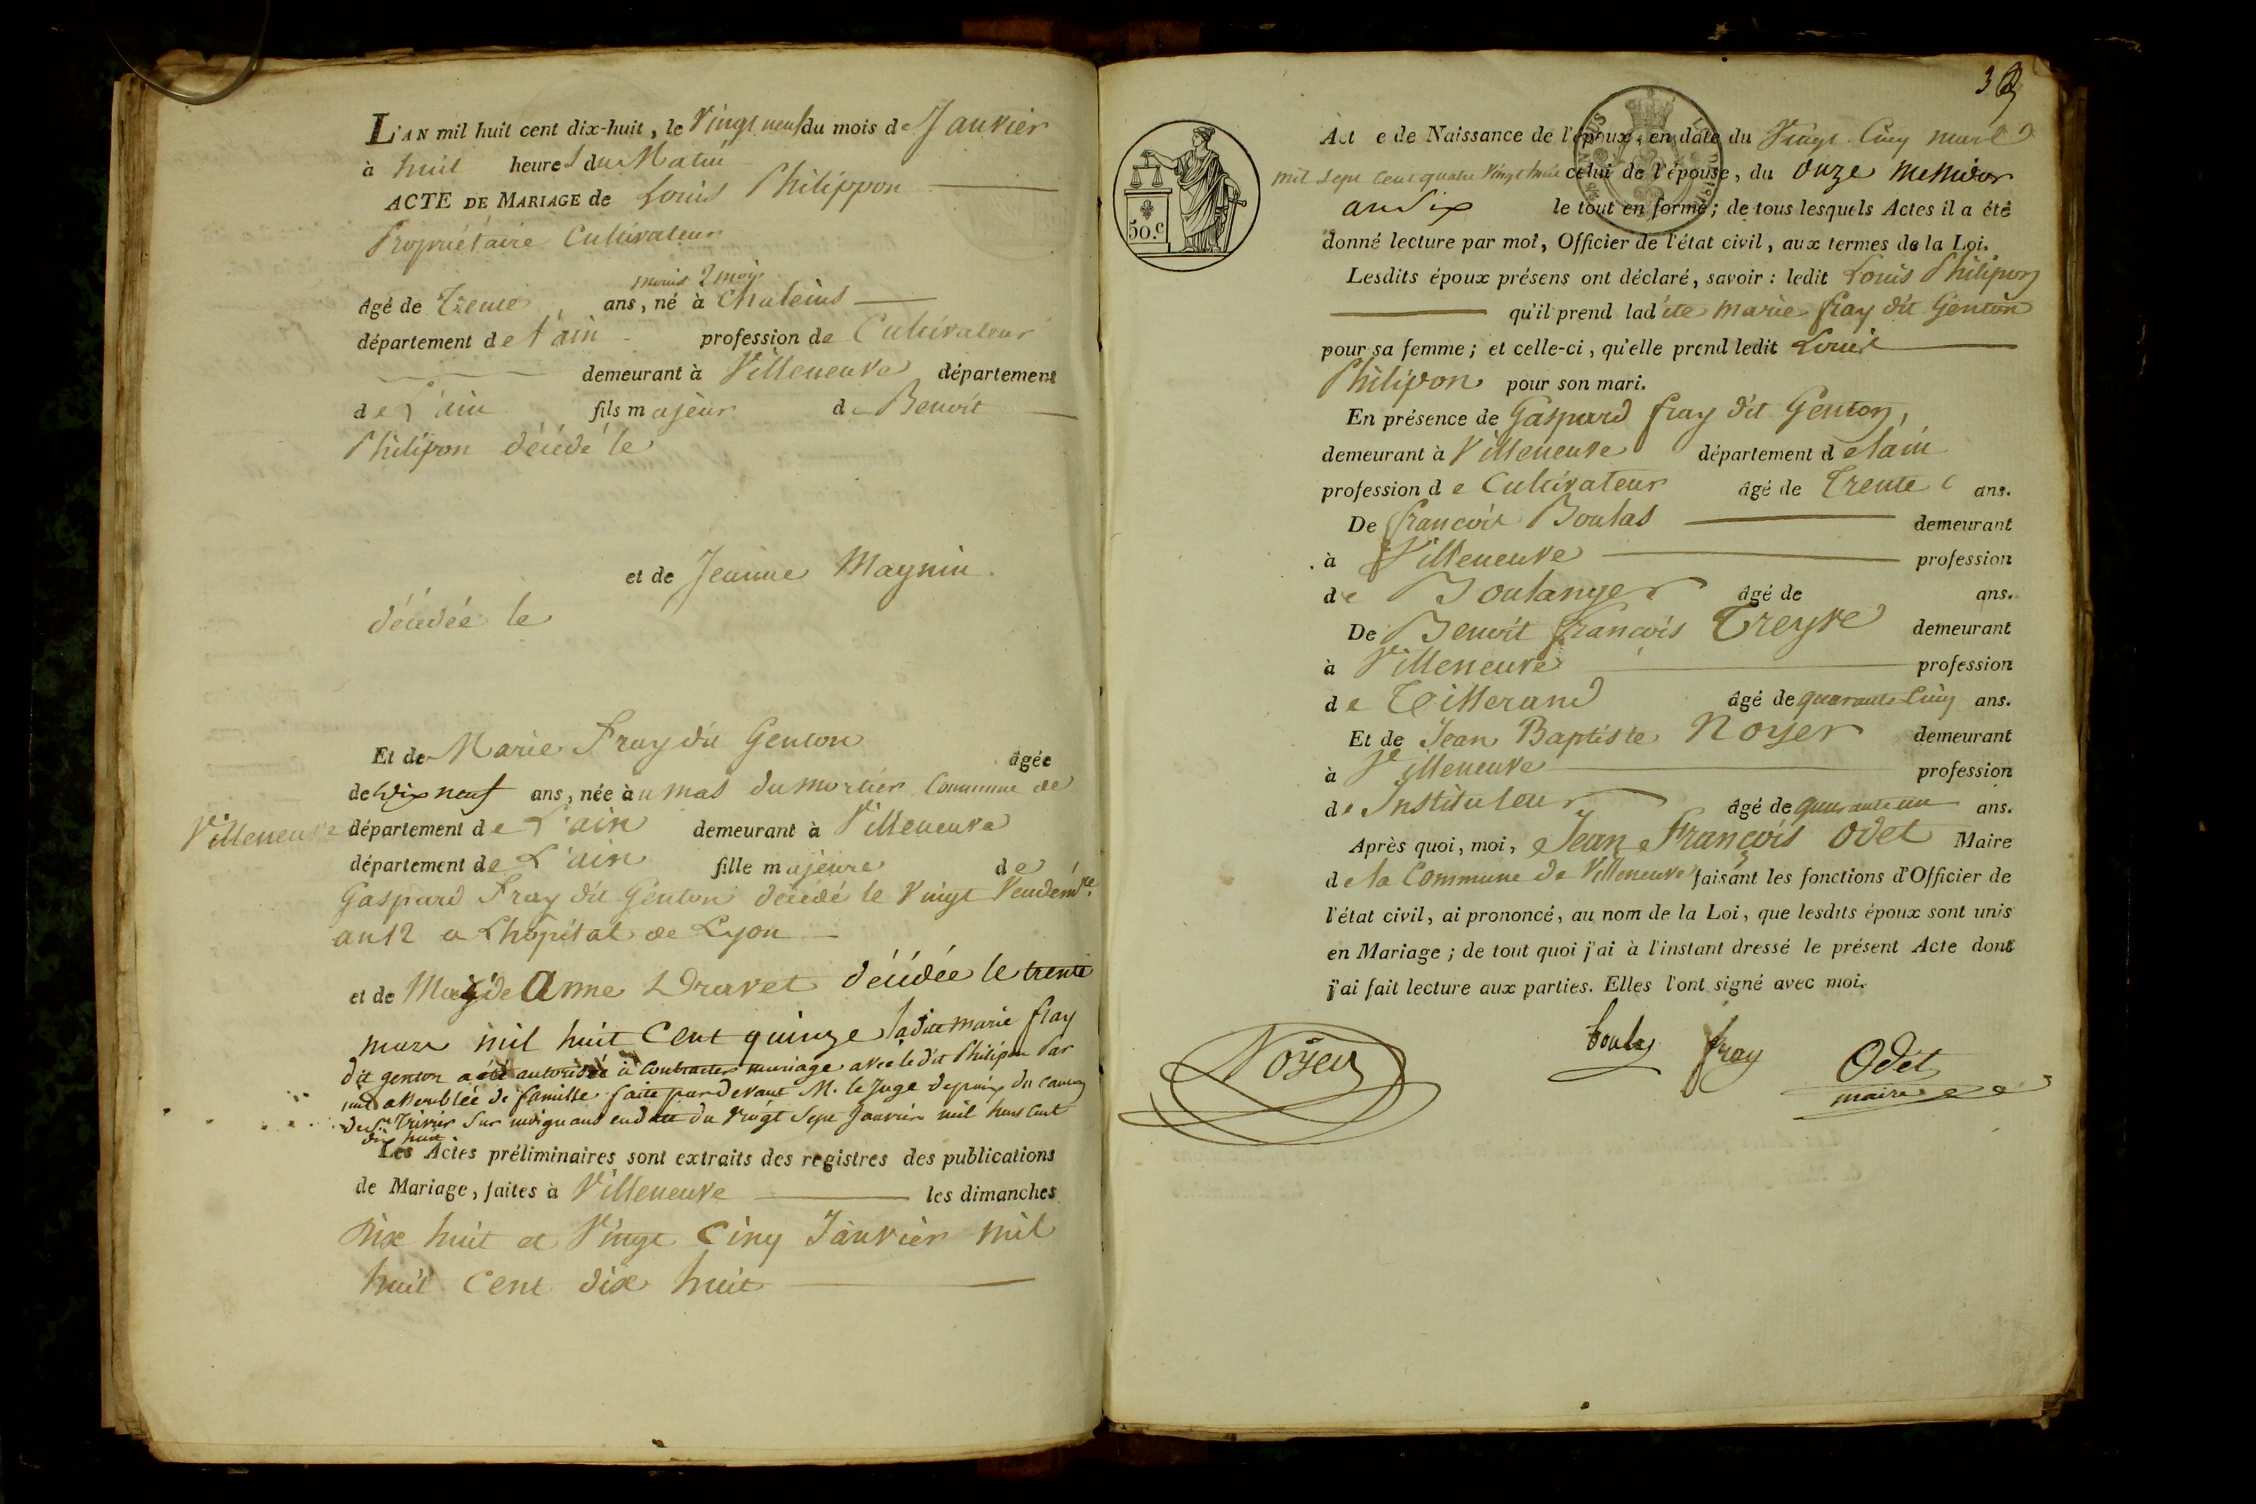 L'AN mil huit cent dix-huit, le Vingt neuf du mois de Janvier
à huit heures du Matin
ACTE DE MARIAGE de Louis Philippon
Propriétaire Cultivateur
moins 2 mois
âgé de trente ans, né à Chaleins
département de l'ain profession de Cultivateur
demeurant à Villeneuve département
de L'ain fils majeur de Benoit
Philipon décédé le
et de Jeanne Magnin
décédée le
Et de Marie Fray dit Genton âgée
de dix neuf ans, née au mas du mortier Commune de
Villeneuve département de L'ain demeurant à Villeneuve
département de L'ain fille majeure de
Gaspard Fray dit Genton décédé le Vingt Vendém.re
an 12 a Lhopital de Lyon
et de Anne Dravet décédée le trente
mars mil huit Cent quinze ladite marie fray
dit genton a été autorisée à Contracter mariage avec le dit Philipon Par
une assemblée de famille faite par devant M. le Juge de paix du Canton
de S.t Trivier Sur moignans en date du Vingt Sept Janvier mil huit Cent
dix huit
Les Actes préliminaires sont extraits des registres des publications
de Mariage, faites à Villeneuve les dimanches
Dix huit et Vingt Cinq Janvier mil
huit Cent dix huit
Acte de Naissance de l'époux, en date du Vingt Cinq mars
mil sept Cent quatre Vingt huit celui de l'épouse, du Onze Messidor
an dix le tout en forme; de tous lesquels Actes il a été
donné lecture par moi, Officier de l'état civil, aux termes de la Loi.
Lesdits époux présens ont déclaré, savoir : ledit Louis Philipon
qu'il prend ladite Marie fray dit Genton
pour sa femme; et celle-ci, qu'elle prend ledit Louis
Philipon pour son mari.
En présence de Gaspard fray dit Genton,
demeurant à Villeneuve département de lain
profession de Cultivateur âgé de trente ans.
De francois Boulas demeurant
à Villeneuve profession
de Boulanger âgé de ans.
De Benoit francois Treyve demeurant
à Villeneuve profession
de Tisserand âgé de quarante Cinq ans.
Et de Jean Baptiste Noyer demeurant
à Villeneuve profession
de Instituteur âgé de quarante un ans.
Après quoi, moi, Jean François Odet Maire
de la Commune de Villeneuve faisant les fonctions d'Officier de
l'état civil, ai prononcé, au nom de la Loi, que lesdits époux sont unis
en Mariage; de tout quoi j'ai à l'instant dressé le présent Acte dont
j'ai fait lecture aux parties. Elles l'ont signé avec moi.
Noyer boulas fray Odet
maire
50.c